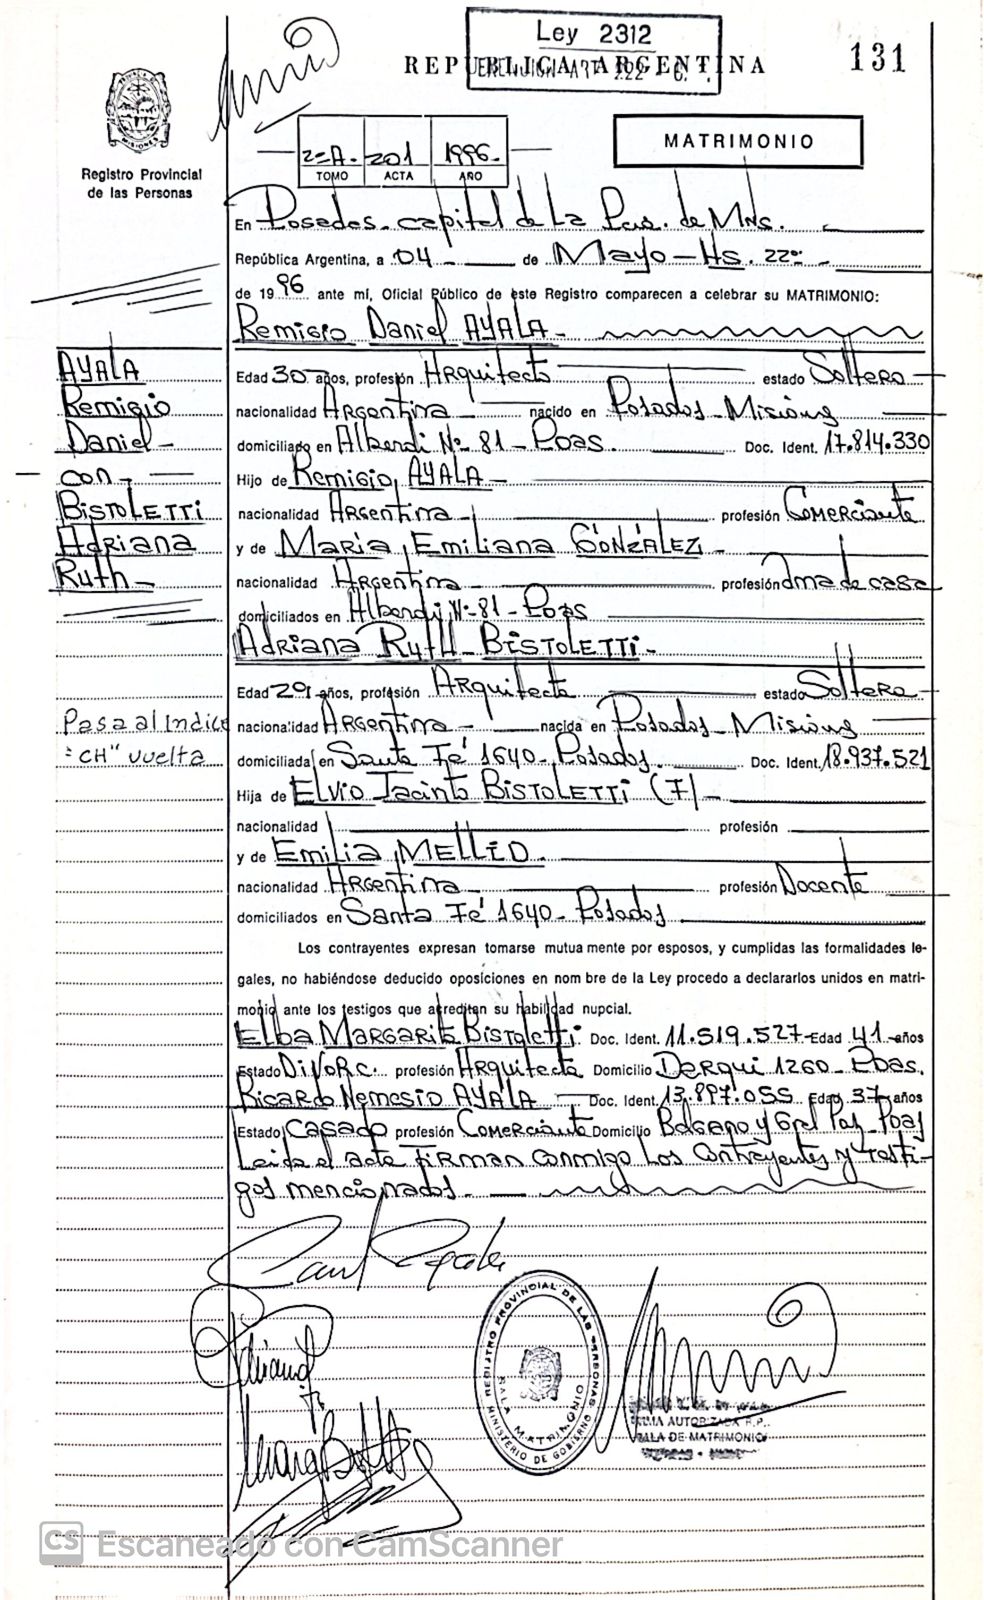 Ley 2312
REPUBLICA ARGENTINA
131
Registro Provincial
de las Personas
2=A. 201 1996-
TOMO ACTA AÑO
MATRIMONIO
En Posadas. capital de La Pcia. de Mns.
República Argentina, a 04 - de Mayo - Hs. 22
de 1996 ante mí, Oficial Público de este Registro comparecen a celebrar su MATRIMONIO:
Remigio Daniel AYALA -
AYALA
Remigio
Daniel -
con -
BISTOLETTI
Adriana
Ruth -
Edad 30 años, profesión Arquitecto estado Soltero
nacionalidad Argentina nacido en Posadas - Misiones
domiciliado en Alberdi Nº 81 - Poas. Doc. Ident. 17.814.330
Hijo de Remigio AYALA -
nacionalidad Argentina - profesión Comerciante
y de María Emiliana GONZALEZ -
nacionalidad Argentina - profesión ama de casa
domiciliados en Alberdi Nº 81 - Poas
Adriana Ruth BISTOLETTI -
Edad 29 años, profesión Arquitecta estado Soltera -
Pasa al Indice
"CH" vuelta
nacionalidad Argentina - nacida en Posadas - Misiones
domiciliada en Santa Fé 1640 - Posadas. Doc. Ident. 18.937.521
Hija de Elvio Jacinto BISTOLETTI (F) -
nacionalidad profesión
y de Emilia MELLID.
nacionalidad Argentina - profesión Docente
domiciliados en Santa Fé 1640 - Posadas
Los contrayentes expresan tomarse mutua mente por esposos, y cumplidas las formalidades le-
gales, no habiéndose deducido oposiciones en nom bre de la Ley procedo a declararlos unidos en matri-
monio ante los testigos que acrediten su habilidad nupcial.
Elba Margarita Bistoletti Doc. Ident. 11.519.527 - Edad 41 años
Estado Divorc. profesión Arquitecta Domicilio Derqui 1260 - Poas.
Ricardo Nemesio AYALA - Doc. Ident. 13.897.055 Edad 37 años
Estado Casado profesión Comerciante Domicilio Belgrano y Gral Paz - Poas
Leida el acta firman conmigo los contrayentes y testi-
gos mencionados. -
REGISTRO PROVINCIAL DE LAS PERSONAS
SALA MATRIMONIO
MINISTERIO DE GOBIERNO
FIRMA AUTORIZADA R.P.
SALA DE MATRIMONIO
CS Escaneado con CamScanner